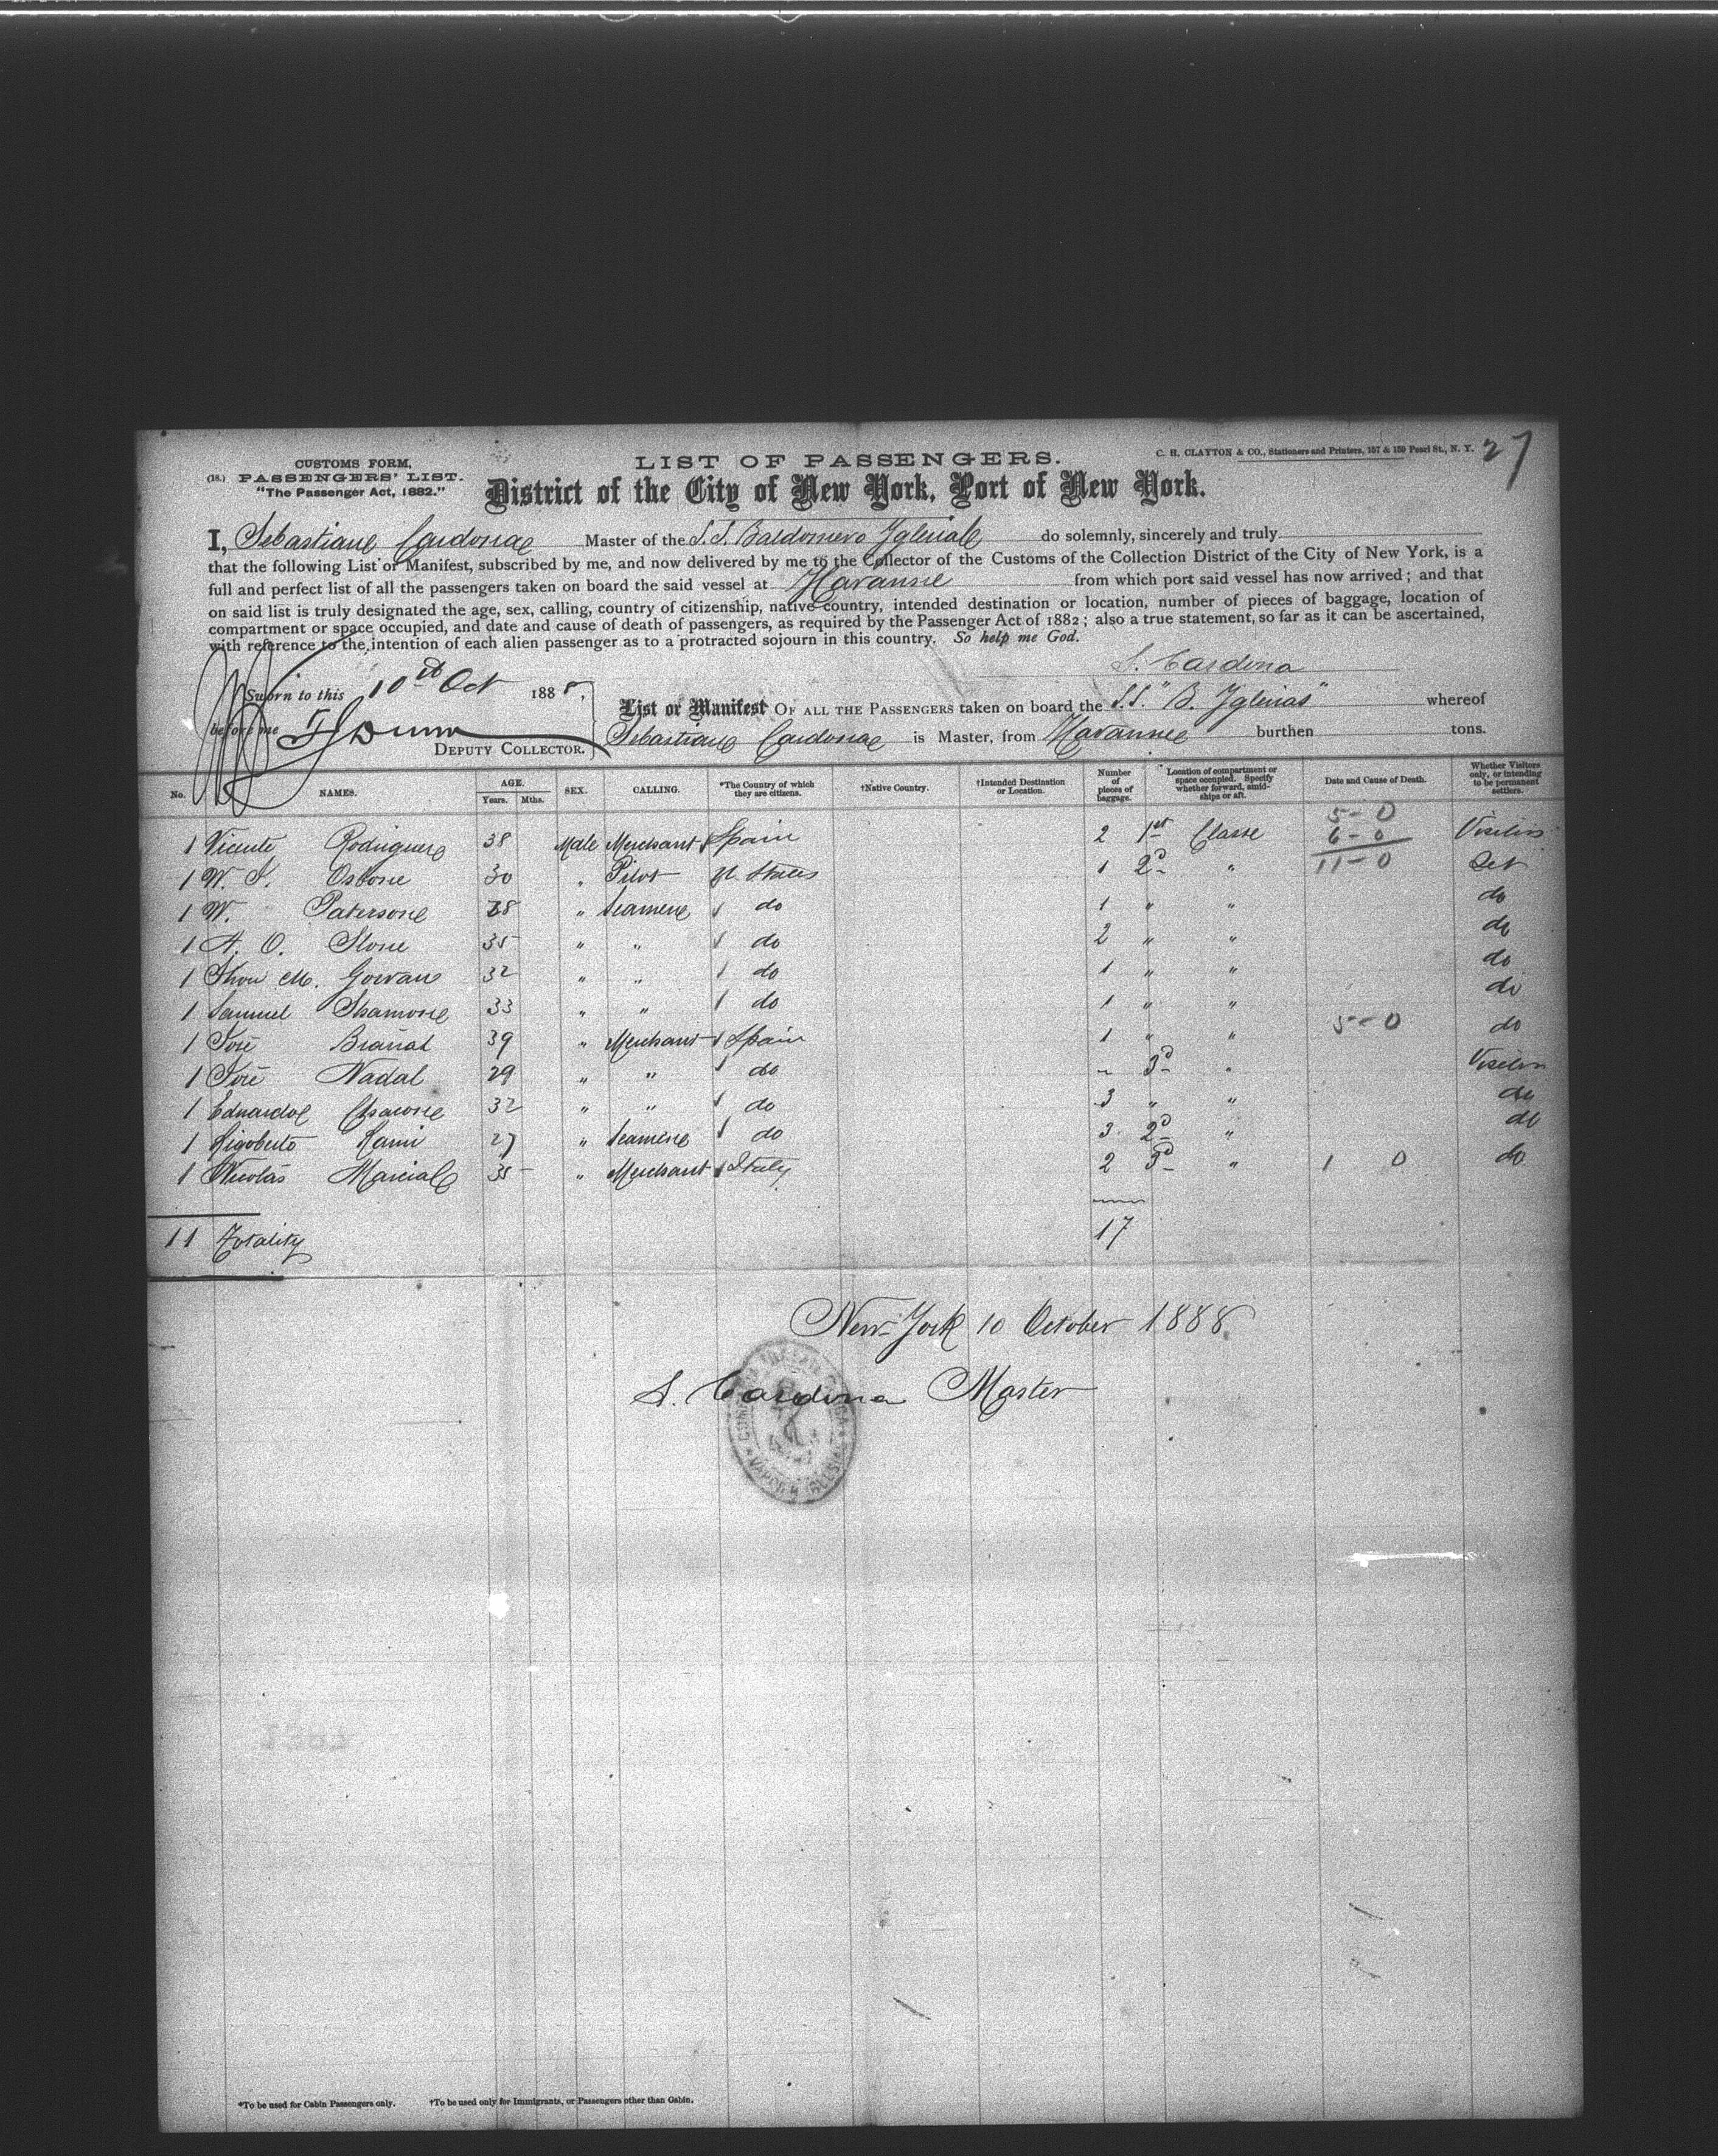 27
C. H. CLAYTON & CO., Stationers and Printers, 157 & 159 Pearl St., N. Y.
CUSTOMS FORM,
(18.) PASSENGERS' LIST.
"The Passenger Act, 1882."
LIST OF PASSENGERS.
District of the City of New York, Port of New York.
I, Sebastiane Cardonae Master of the S.S. Baldomero Yglesiale do solemnly, sincerely and truly
that the following List or Manifest, subscribed by me, and now delivered by me to the Collector of the Customs of the Collection District of the City of New York, is a
full and perfect list of all the passengers taken on board the said vessel at Havanne from which port said vessel has now arrived; and that
on said list is truly designated the age, sex, calling, country of citizenship, native country, intended destination or location, number of pieces of baggage, location of
compartment or space occupied, and date and cause of death of passengers, as required by the Passenger Act of 1882; also a true statement, so far as it can be ascertained,
with reference to the intention of each alien passenger as to a protracted sojourn in this country. So help me God.
S. Cardona
Sworn to this 10th Oct 1888,
before me
DEPUTY COLLECTOR.
List or Manifest OF ALL THE PASSENGERS taken on board the S.S. "B. Yglesias" whereof
Sebastiane Cardonae is Master, from Havannee burthen tons.
No. NAMES. AGE. Years. Mths. SEX. CALLING. *The Country of which they are citizens. †Native Country. †Intended Destination or Location. Number of pieces of baggage. Location of compartment or space occupied. Specify whether forward, amidships or aft. Date and Cause of Death. Whether Visitors only, or intending to be permanent settlers.
5-0
1 Vicente Rodriguez 38 Male Merchant Spain 2 1st Classe 6-0
1 W. Osbone 30 " Pilot U. States 1 2d " 11-0
1 W. Patersone " Seamene do 1 " " do
1 A. O. Stone 35 " " do 2 " " do
1 M. Gowane 32 " " do 1 " " do
1 Samuel 33 " " do 1 " " do
5-0
1 José 39 " Merchant Spain 1 " " do
1 José Nadal 29 " " do - 3d "
1 Eduardoe 32 " " do 3 " " do
1 Rigoberto 27 " Seamene do 3 2d " do
1 Nicolás Marciale 35 " Merchant Italy 2 3d " 1 0 do
11 Totality 17
New-York 10 October 1888
S. Cardona Master
*To be used for Cabin Passengers only. †To be used only for Immigrants, or Passengers other than Cabin.